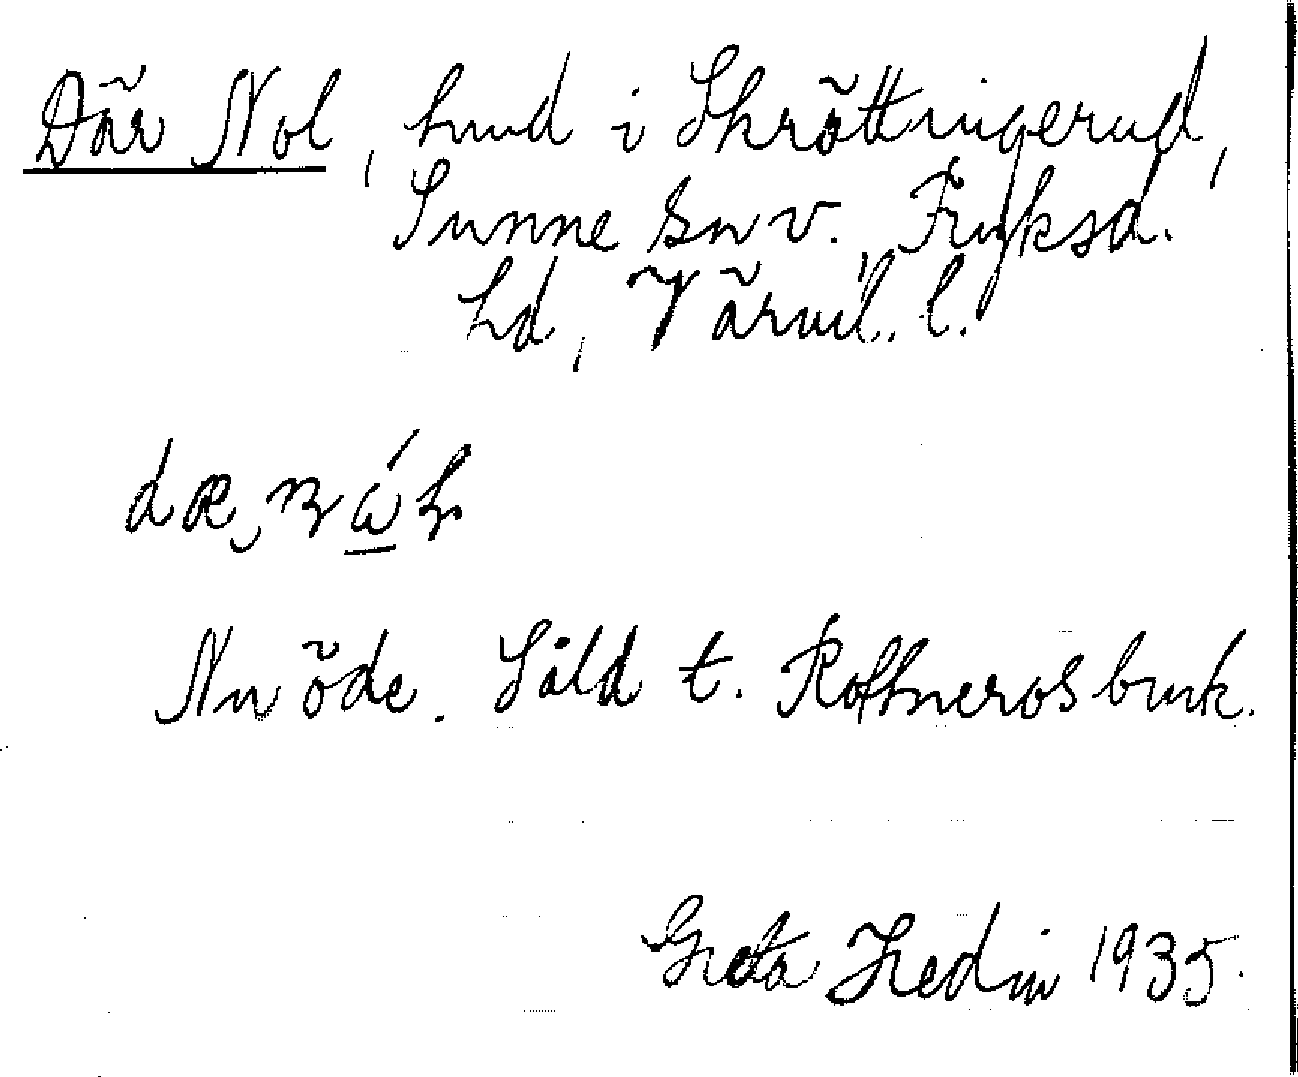 Där Nol, hmd i Skröttingerud,
Sunne sn v. Fryksd.
hd, Värml. l.
Nu öde. Såld t. Rottneros bruk.
Greta Hedin 1935.